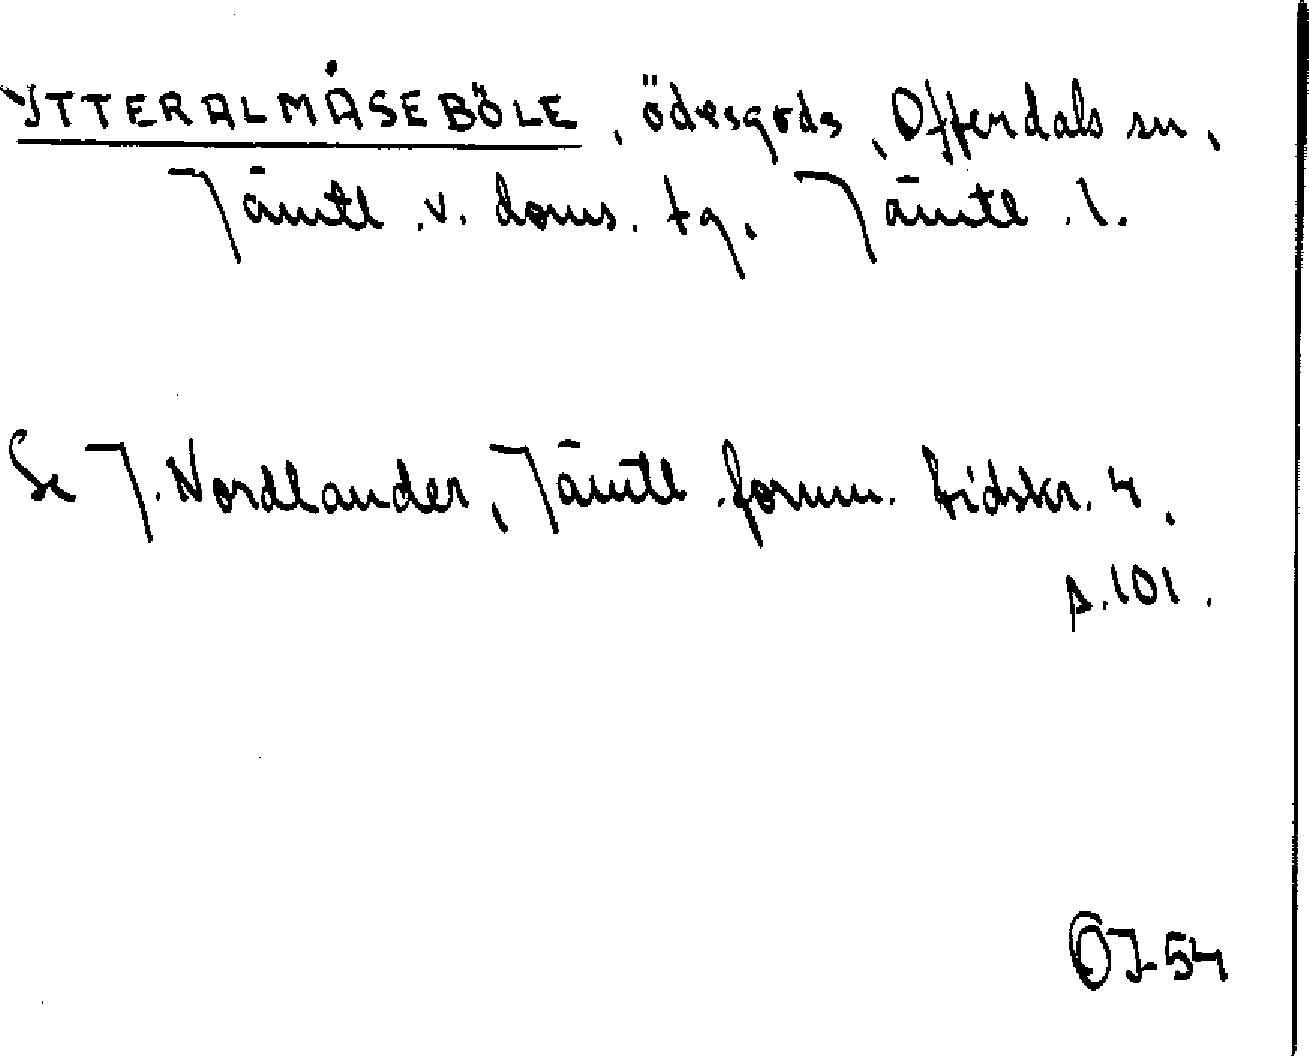 YTTERALMÅSEBÖLE, ödesgods, Offerdals sn,
Jämtl. v. doms. tg. Jämtl. l.
Se J. Nordlander, Jämtl. fornm. tidskr. 4,
s. 101.
OJ-54